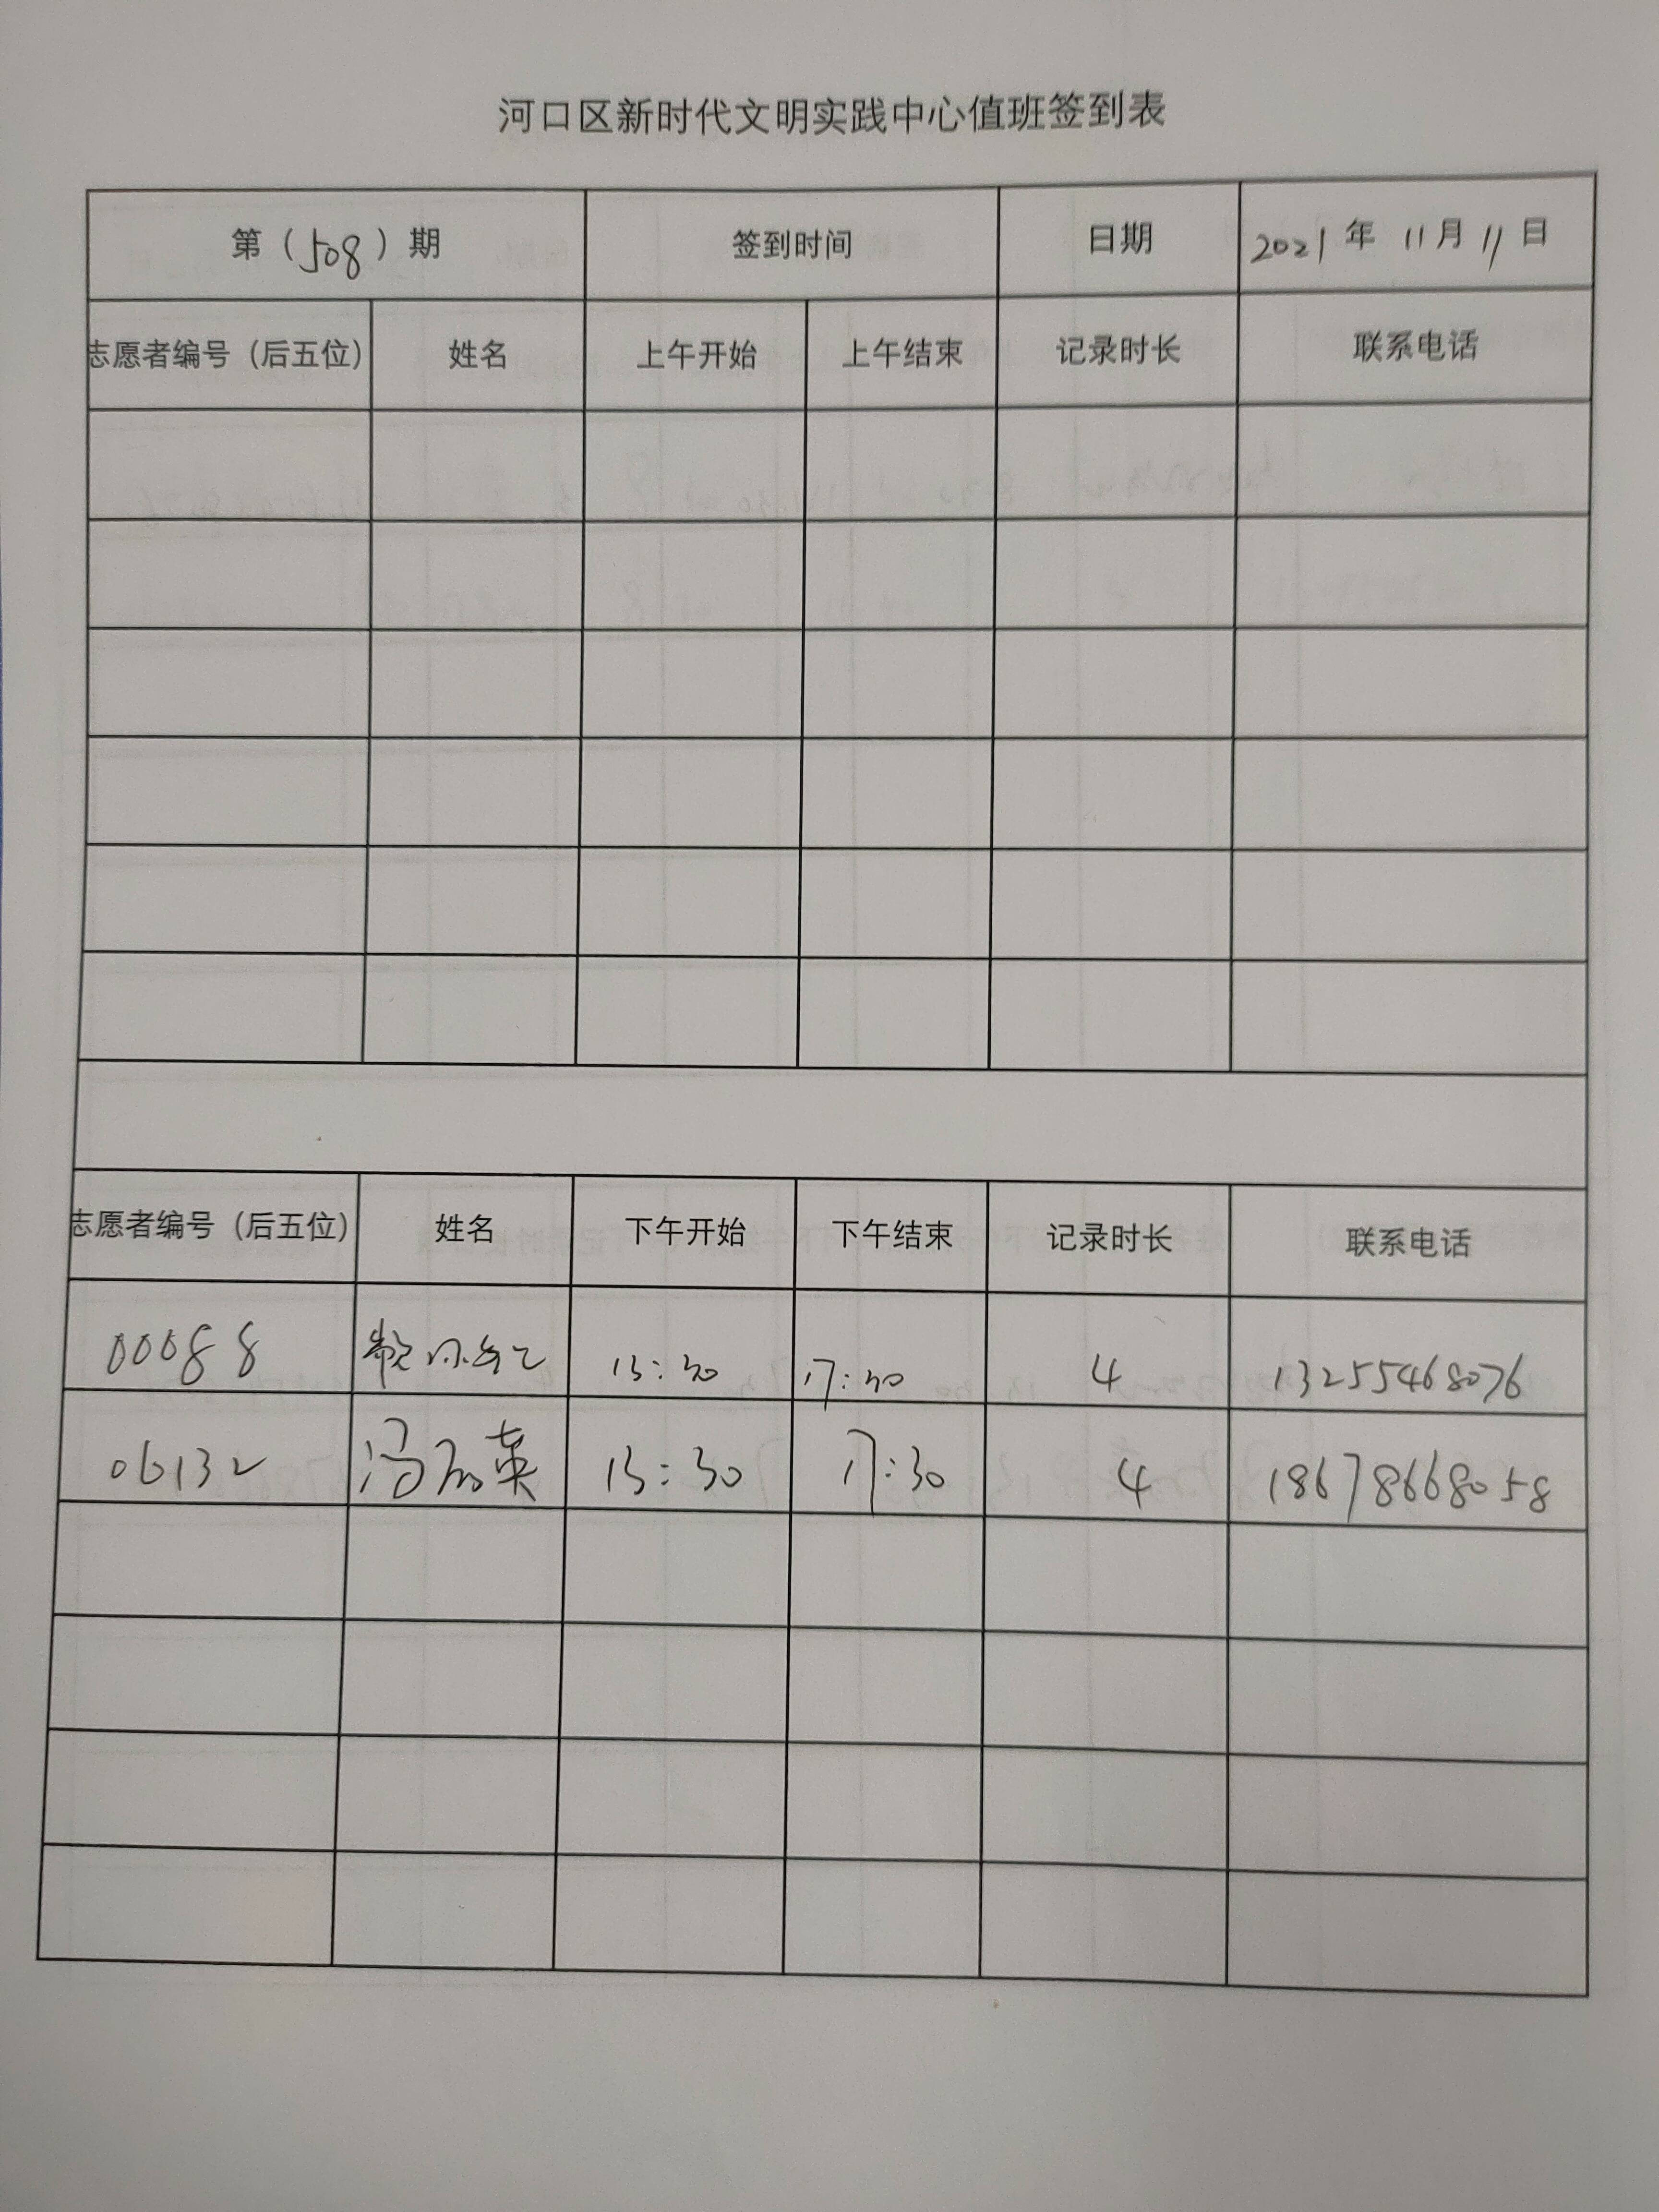 河口区新时代文明实践中心值班签到表
第（508）期 签到时间 日期 2021年 11月 11日
志愿者编号（后五位） 姓名 上午开始 上午结束 记录时长 联系电话
志愿者编号（后五位） 姓名 下午开始 下午结束 记录时长 联系电话
00088 13:30 17:30 4 13255468076
06132 冯 英 13:30 17:30 4 18678668058